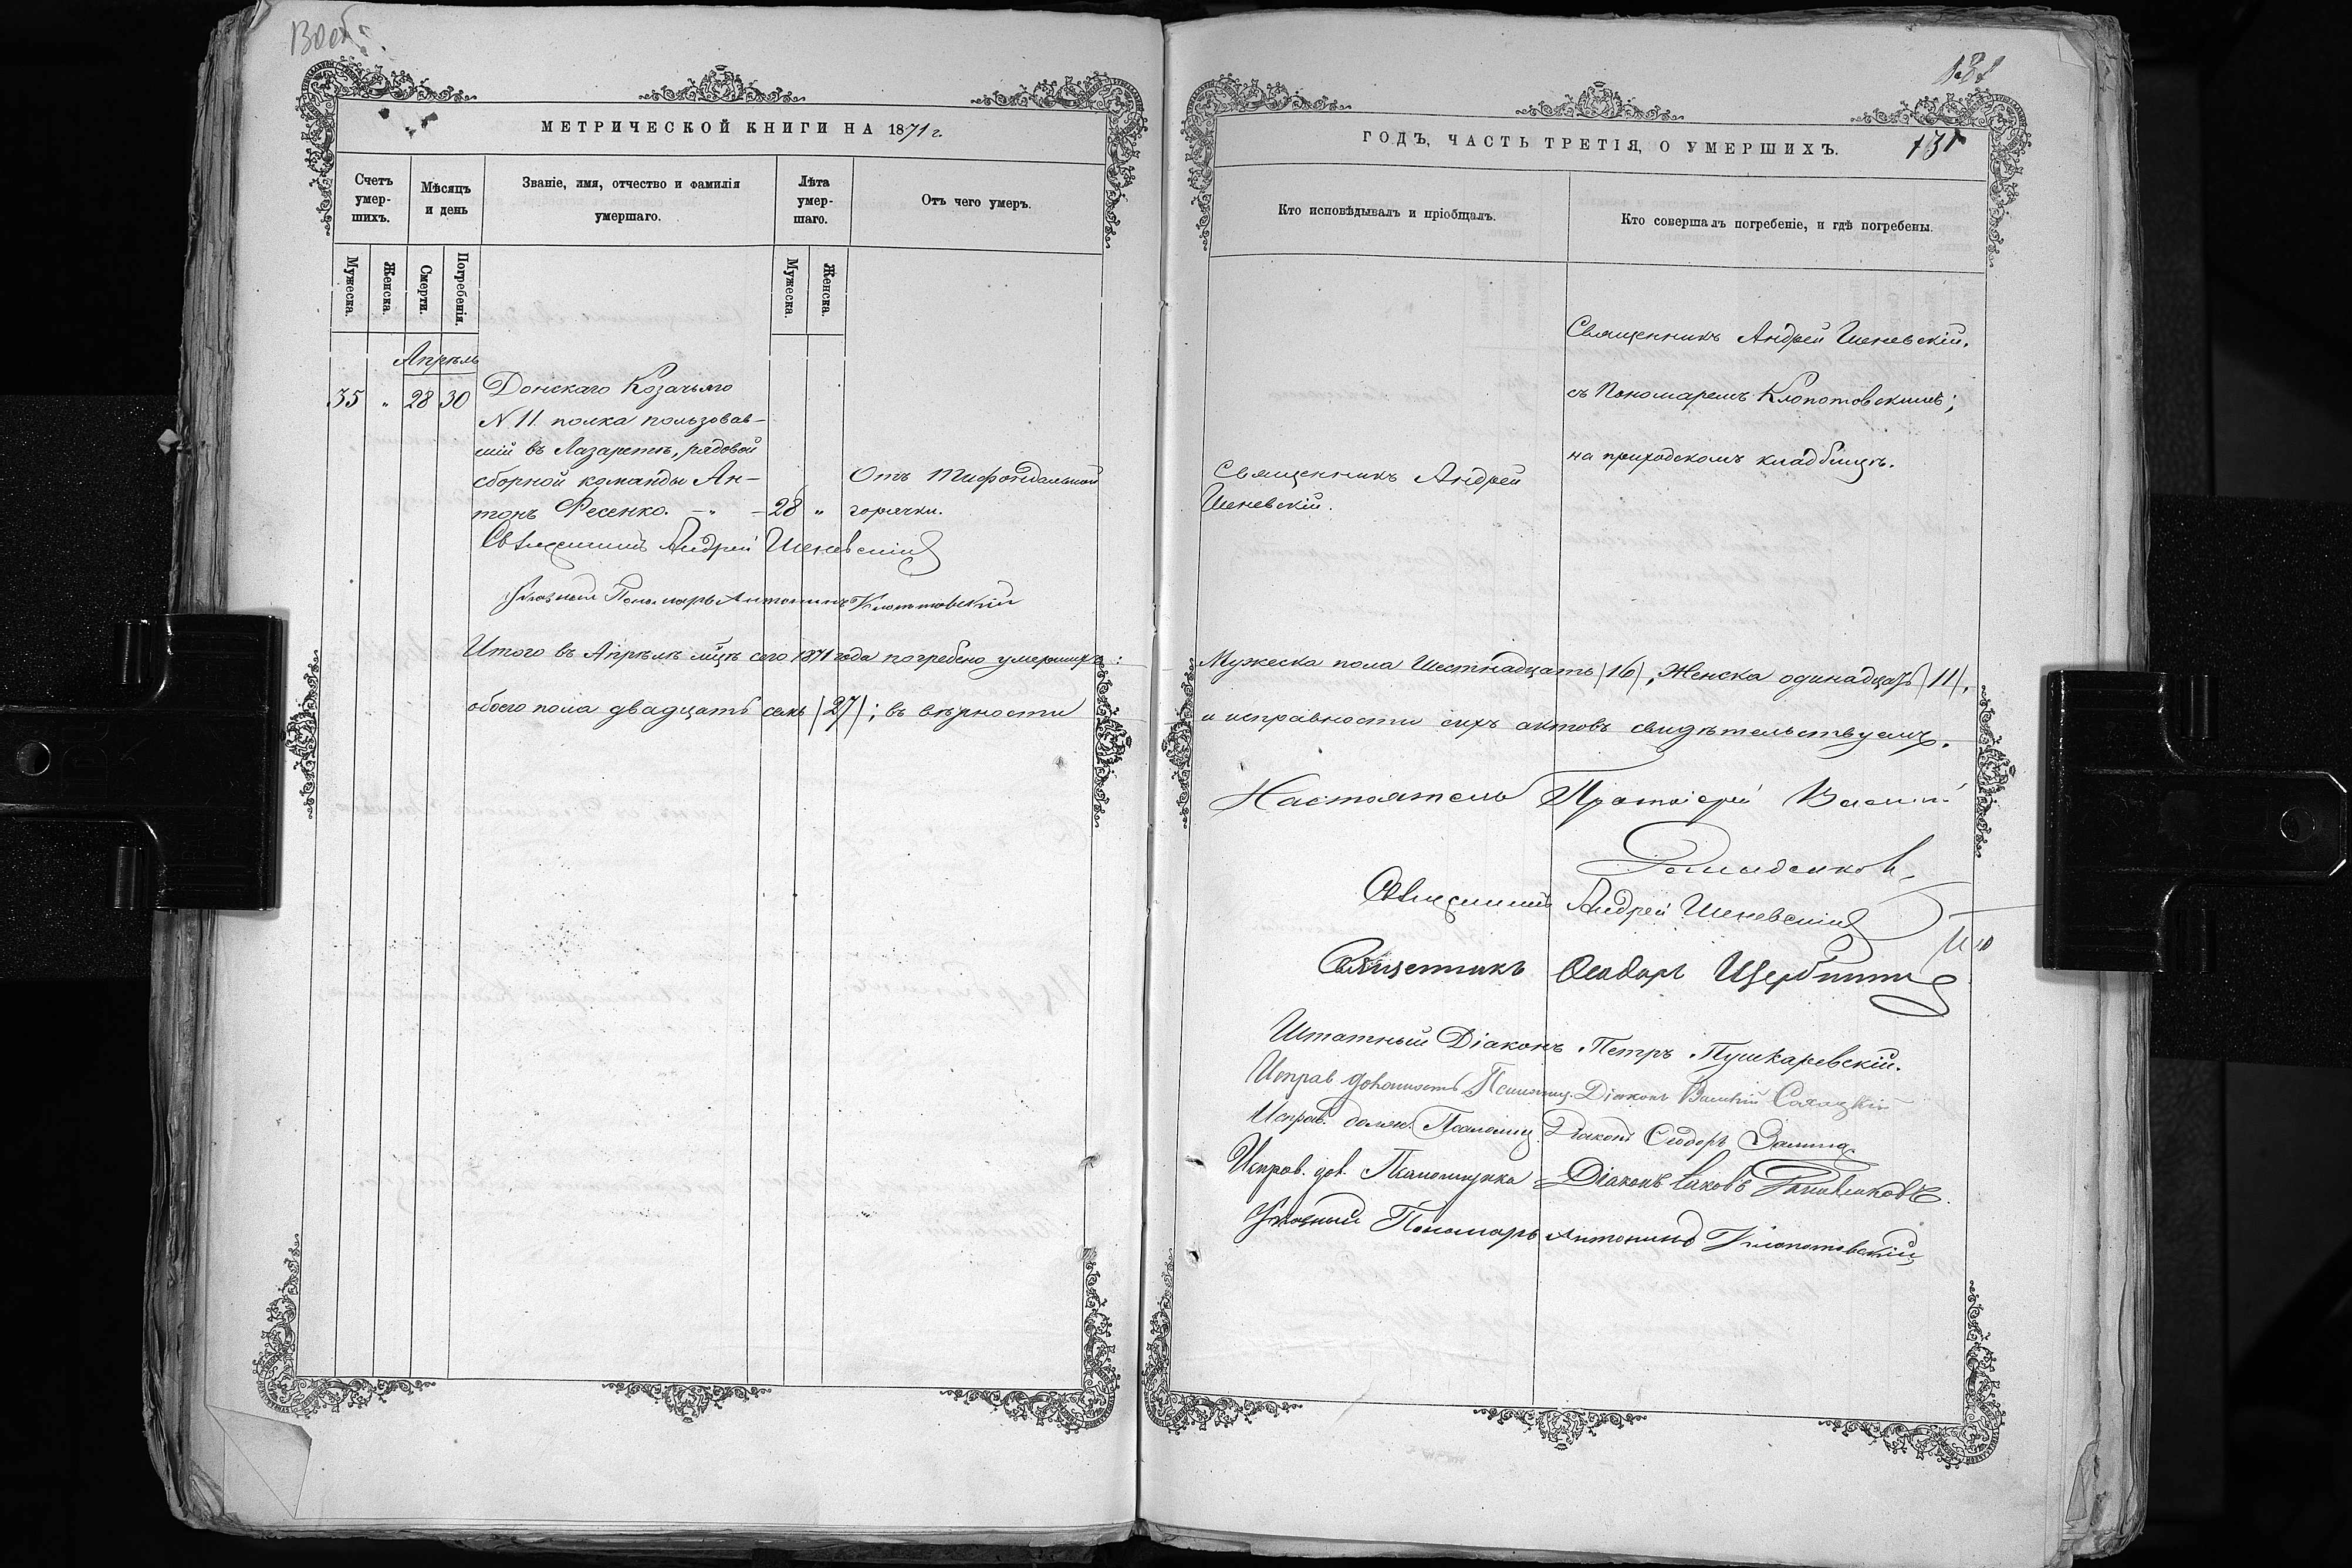 МЕТРИЧЕСКОЙ КНИГИ НА 1871 г.
Счетъ умер-шихъ.
Мѣсяцъ и день
Званіе, имя, отчество и фамилія умершаго.
Лѣта умер-шаго.
Отъ чего умеръ.
Мужеска.
Женска.
Смерти.
Погребенія.
Мужеска.
Женска.
Апрѣль
35 " 28 30 Донскаго Козачьяго
N 11 полка пользовав-
шій въ Лазаретѣ, рядовой
сборной команды Ан-
тонъ Фесенко. - " - 28 "
Отъ Тифоидальной
горячки.
Священникъ Андрей Шеневскій
Пономарь Антонинъ Клопотовскій
Итого въ Апрѣлѣ мцѣ сего 1871 года погребено умершихъ:
обоего пола двадцать семь (27); въ вѣрности
131
ГОДЪ, ЧАСТЬ ТРЕТІЯ, О УМЕРШИХЪ.
Кто исповѣдывалъ и пріобщалъ.
Кто совершалъ погребеніе, и гдѣ погребены.
Священникъ Андрей
Шеневскій.
Священникъ Андрей Шеневскій.
съ Пономаремъ Клопотовскимъ;
на приходскомъ кладбищѣ.
Мужеска пола Шестнадцать (16), Женска одинадцать (11),
и исправности сихъ актовъ свидѣтельствуемъ.
Настоятель Протоіерей Василій
Священникъ Андрей Шеневскій
Священникъ Ѳеодоръ Щербина
Штатный Діаконъ Петръ Пушкаревскій.
Исправ. должность Псаломщ. Діаконъ Василій
Исправ. должн. Псаломщ. Діаконъ Ѳеодоръ
Исправ. дол. Псаломщика Діаконъ Іаковъ
Пономарь Антонинъ Клопотовскій